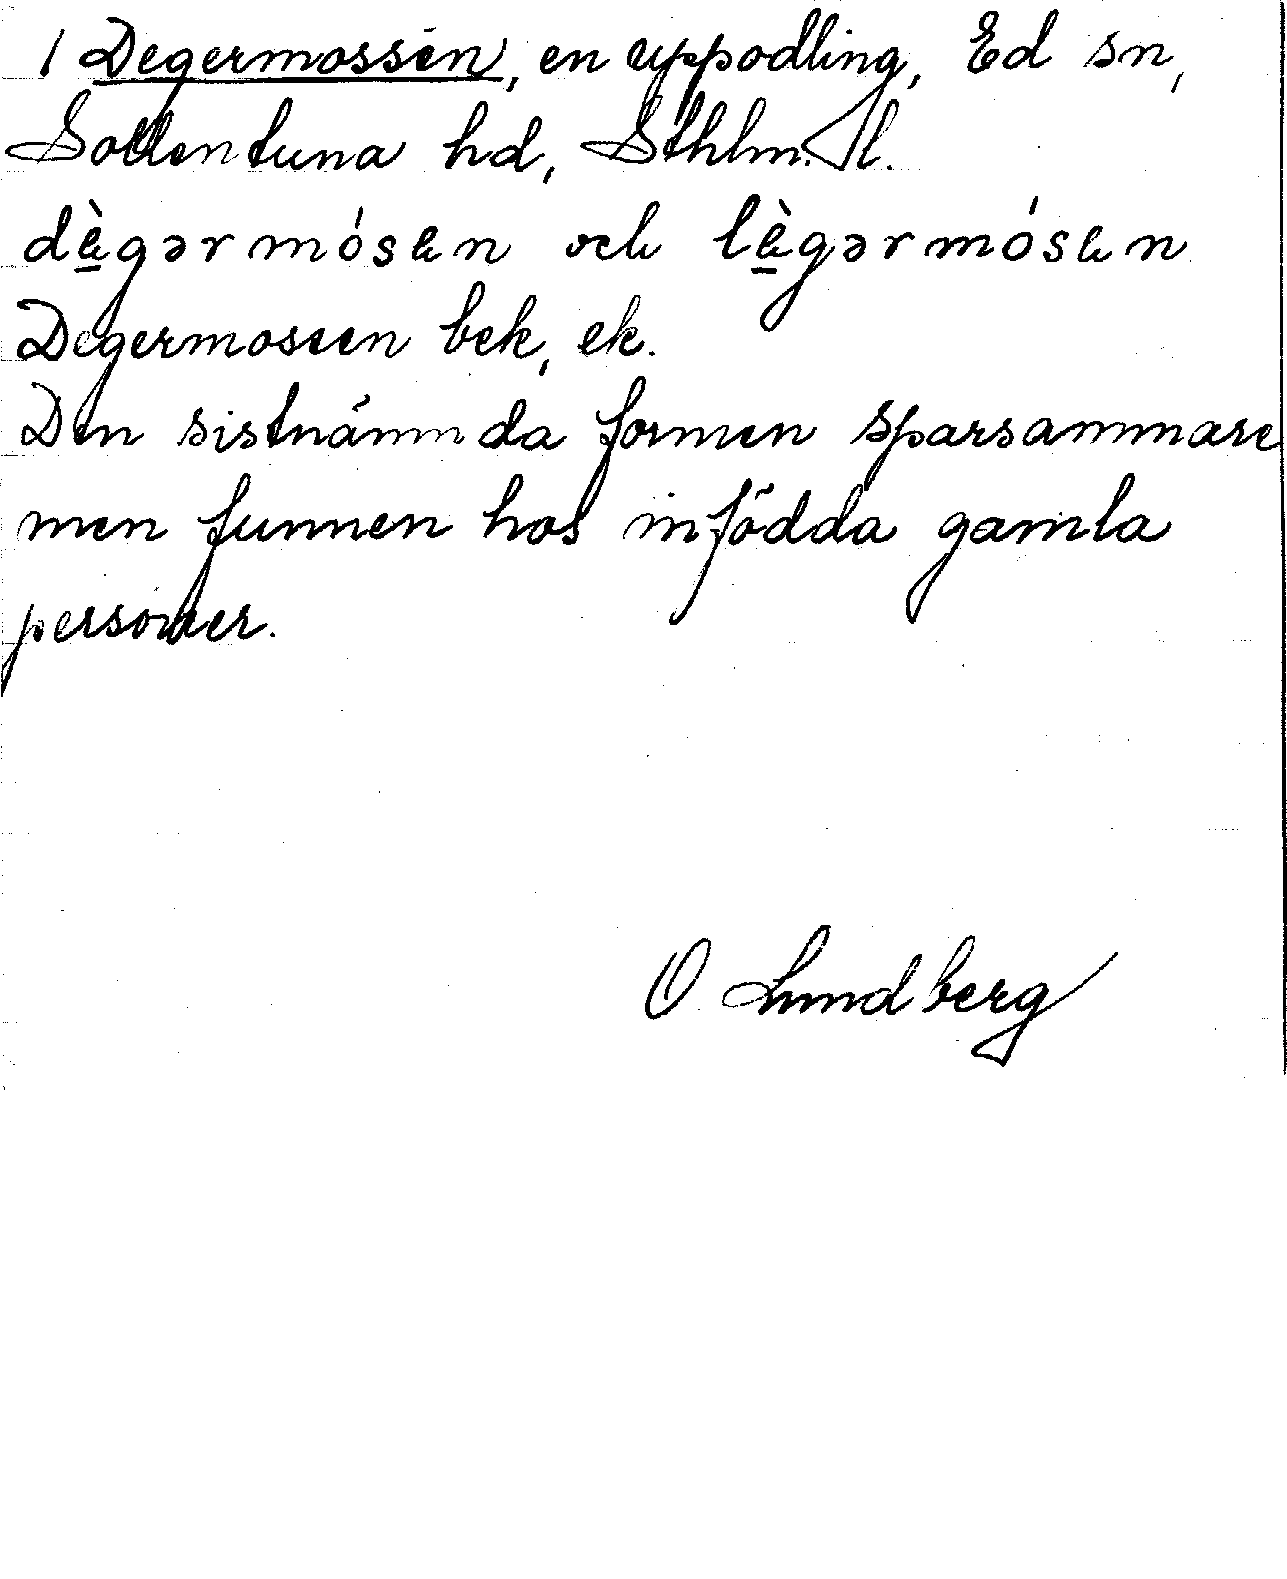 / Degermossen, en uppodling, Ed sn,
Sollentuna hd, Sthlms l.
dè̠gərmósɐn och lè̠gərmósɐn
Degermossen bek, ek.
Den sistnämnda formen sparsammare
men funnen hos infödda gamla
personer.
O Lundberg